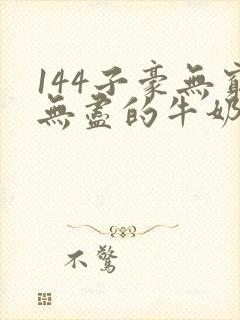 144子豪無窮
無盡的牛奶
不驚